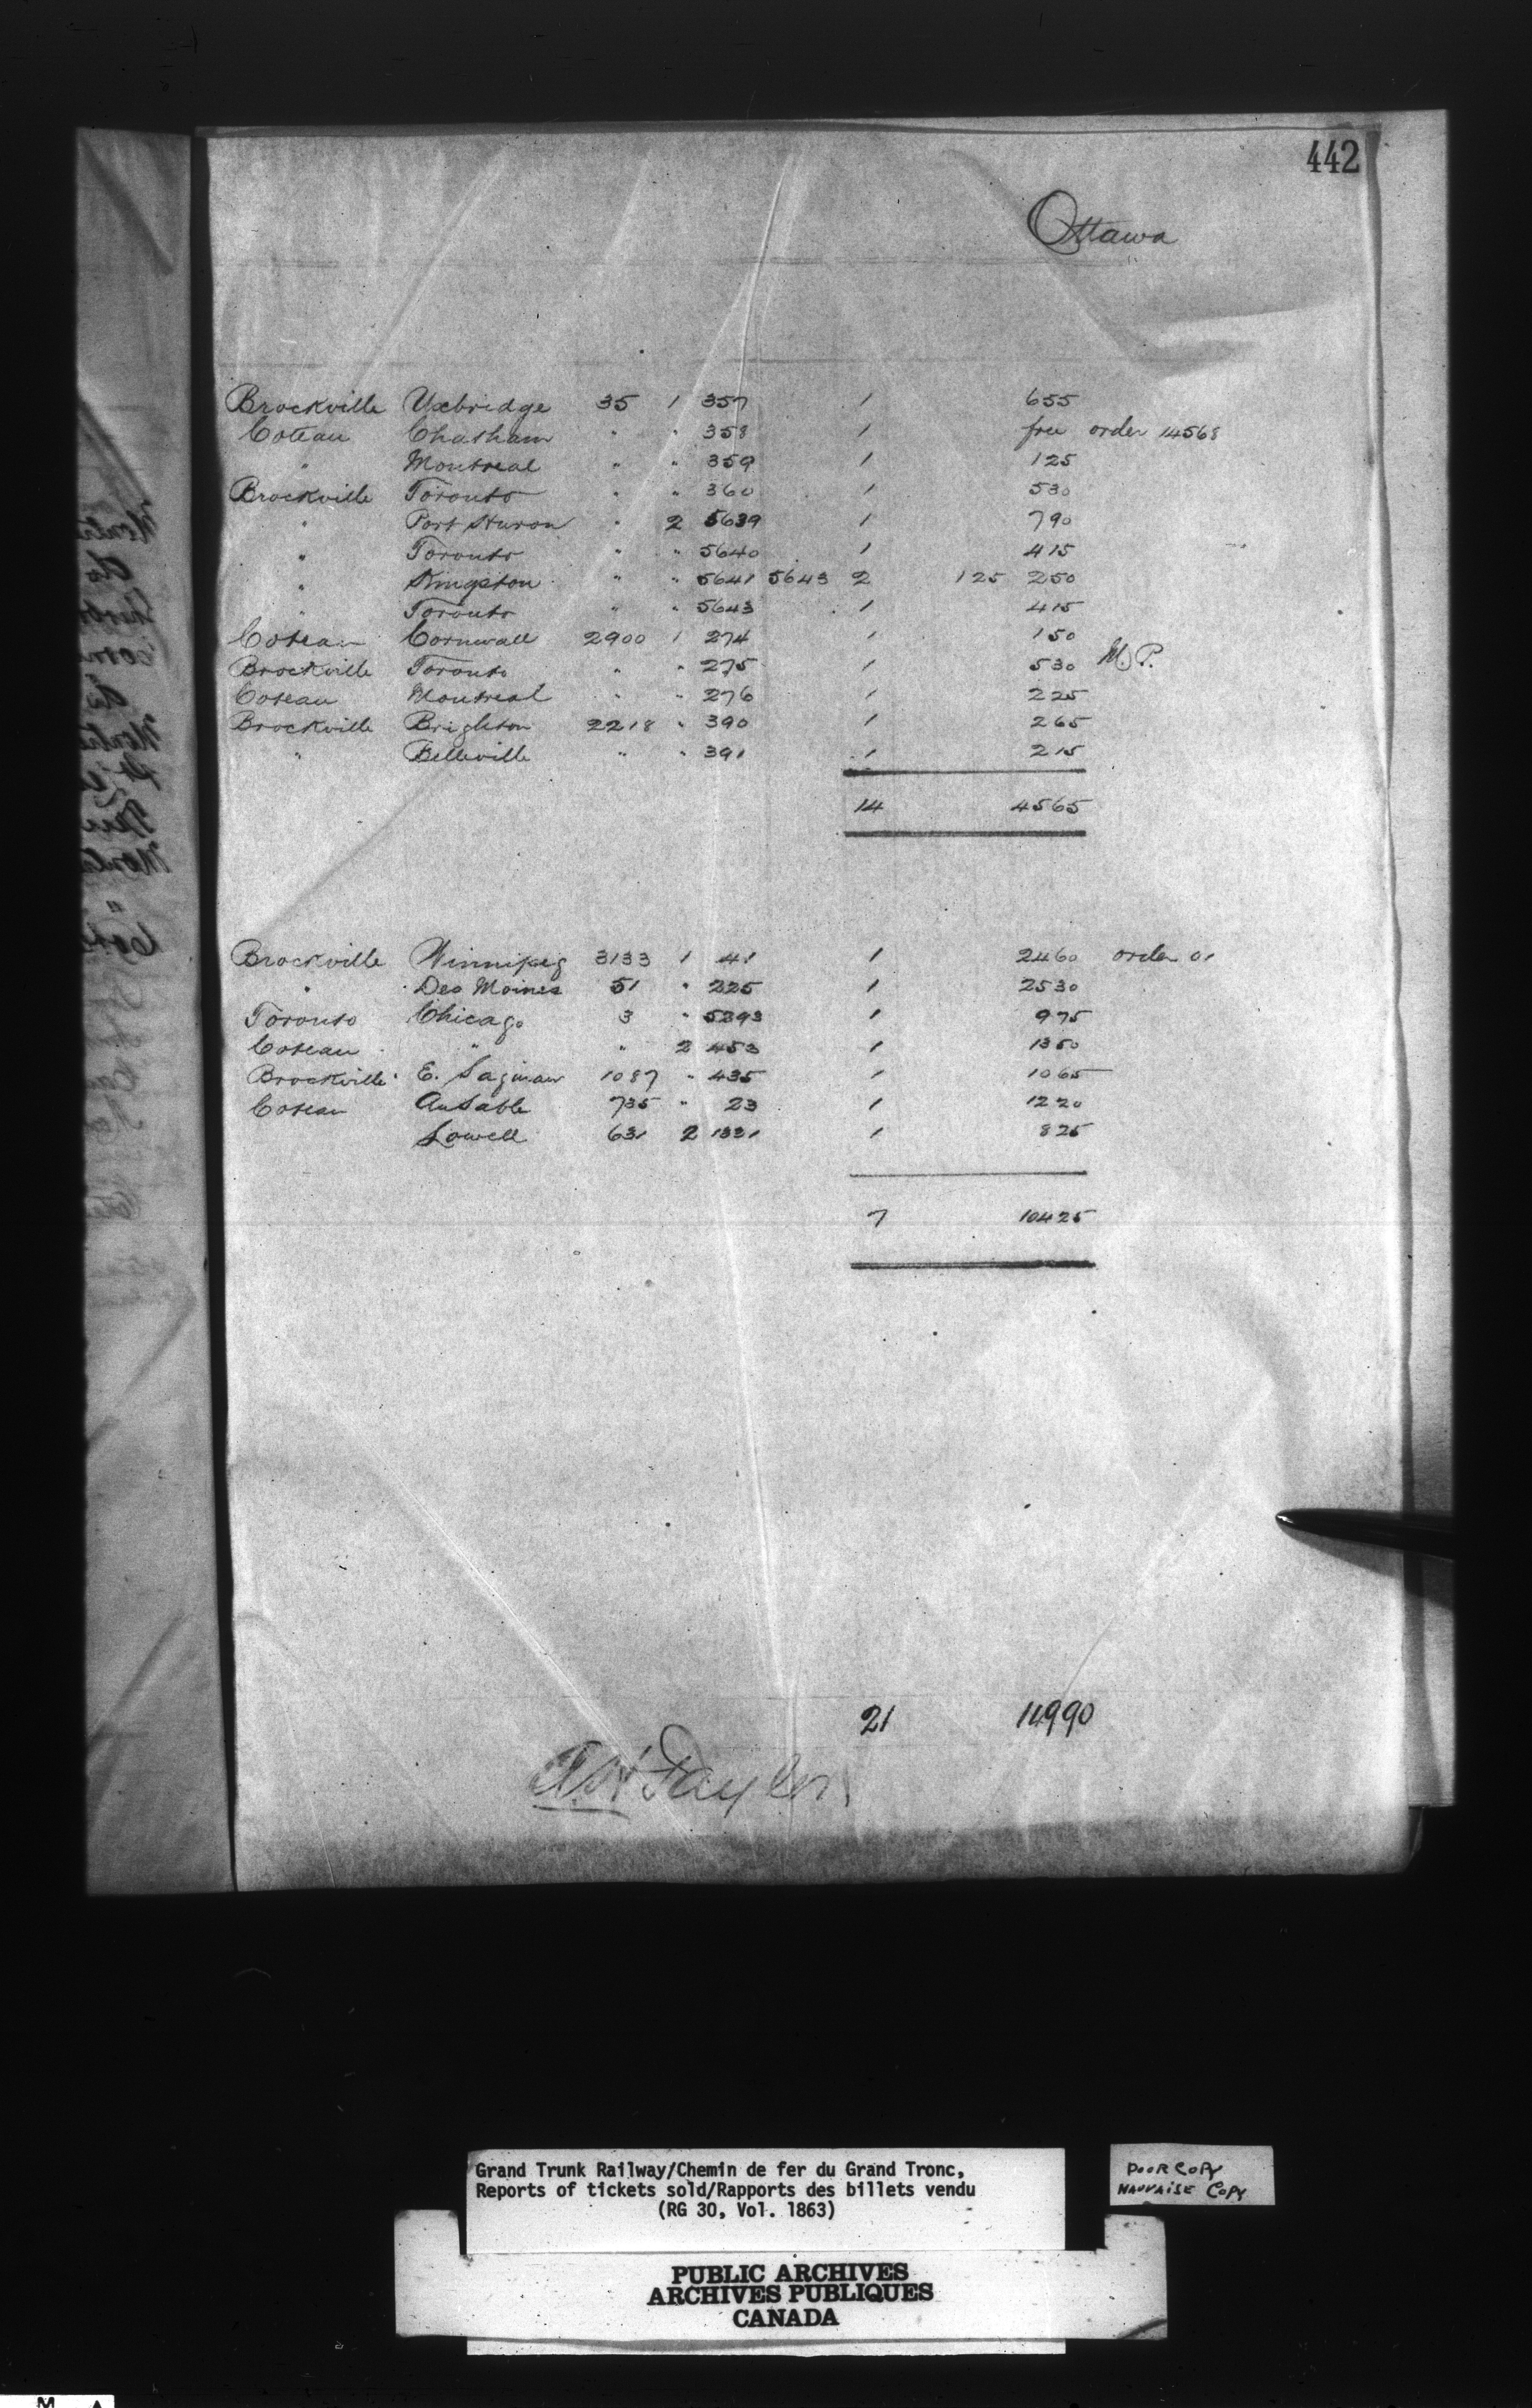 442
Ottawa
Brockville Uxbridge 35 1 357 1 655
Coteau Chatham " " 358 1 free order 14568
" Montreal " " 359 1 125
Brockville Toronto " " 360 1 530
" Port Huron " 2 5639 1 790
" Toronto " " 5640 1 415
" Kingston " " 5641 5643 2 125 250
" Toronto " " 5643 1 415
Coteau Cornwall 2900 1 274 1 150
Brockville Toronto " " 275 1 530 M.P.
Coteau Montreal " " 276 1 225
Brockville Brighton 2218 " 390 1 265
" Belleville " " 391 1 215
14 4565
Brockville Winnipeg 3133 1 41 1 2460 order
" Des Moines 51 " 225 1 2530
Toronto Chicago 3 " 5393 1 975
Coteau " " 2 453 1 1350
Brockville E. Saginaw 1087 " 435 1 1065
Coteau AuSable 735 " 23 1 1220
Lowell 631 2 1331 1 825
7 10425
21 14990
Taylor
Grand Trunk Railway/Chemin de fer du Grand Tronc,
Reports of tickets sold/Rapports des billets vendu
(RG 30, Vol. 1863)
POOR COPY
MAUVAISE COPY
PUBLIC ARCHIVES
ARCHIVES PUBLIQUES
CANADA